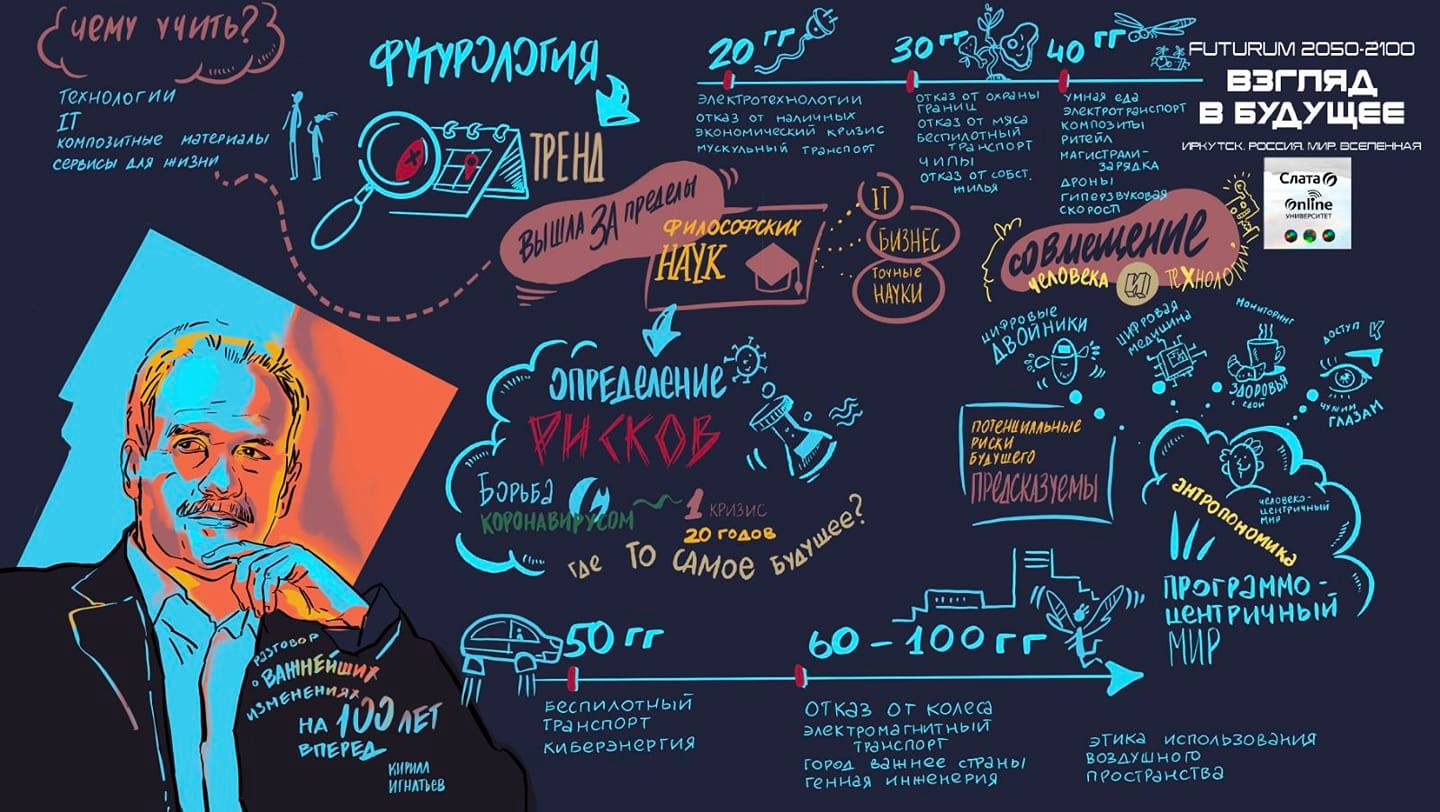 ЧЕМУ УЧИТЬ?
ТЕХНОЛОГИИ
IT
КОМПОЗИТНЫЕ МАТЕРИАЛЫ
СЕРВИСЫ ДЛЯ ЖИЗНИ
ФУТУРОЛОГИЯ
ТРЕНД
ВЫШЛА ЗА ПРЕДЕЛЫ
ФИЛОСОФСКИХ
НАУК
IT
БИЗНЕС
ТОЧНЫЕ
НАУКИ
20 ГГ
ЭЛЕКТРОТЕХНОЛОГИИ
ОТКАЗ ОТ НАЛИЧНЫХ
ЭКОНОМИЧЕСКИЙ КРИЗИС
МУСКУЛЬНЫЙ ТРАНСПОРТ
30 ГГ
ОТКАЗ ОТ ОХРАНЫ
ГРАНИЦ
ОТКАЗ ОТ МЯСА
БЕСПИЛОТНЫЙ
ТРАНСПОРТ
ЧИПЫ
ОТКАЗ ОТ СОБСТ.
ЖИЛЬЯ
40 ГГ
УМНАЯ ЕДА
ЭЛЕКТРОТРАНСПОРТ
КОМПОЗИТЫ
РИТЕЙЛ
МАГИСТРАЛИ-
ЗАРЯДКА
ДРОНЫ
ГИПЕРЗВУКОВАЯ
СКОРОСТЬ
FUTURUM 2050-2100
ВЗГЛЯД
В БУДУЩЕЕ
ИРКУТСК. РОССИЯ. МИР. ВСЕЛЕННАЯ
Слата
Online
УНИВЕРСИТЕТ
СОВМЕЩЕНИЕ
ЧЕЛОВЕКА И ТЕХНОЛОГИИ
ЦИФРОВЫЕ
ДВОЙНИКИ
ЦИФРОВАЯ
МЕДИЦИНА
МОНИТОРИНГ
ЗДОРОВЬЯ
ЕДОЙ
ДОСТУП К
ЧУЖИМ
ГЛАЗАМ
ПОТЕНЦИАЛЬНЫЕ
РИСКИ
БУДУЩЕГО
ПРЕДСКАЗУЕМЫ
ЧЕЛОВЕКО-
ЦЕНТРИЧНЫЙ
МИР
АНТРОПОНОМИКА
ПРОГРАММО-
ЦЕНТРИЧНЫЙ
МИР
ОПРЕДЕЛЕНИЕ
РИСКОВ
БОРЬБА С
КОРОНАВИРУСОМ
1 КРИЗИС
20 ГОДОВ
ГДЕ ТО САМОЕ БУДУЩЕЕ?
50 ГГ
БЕСПИЛОТНЫЙ
ТРАНСПОРТ
КИБЕРЭНЕРГИЯ
60 - 100 ГГ
ОТКАЗ ОТ КОЛЕСА
ЭЛЕКТРОМАГНИТНЫЙ
ТРАНСПОРТ
ГОРОД ВАЖНЕЕ СТРАНЫ
ГЕННАЯ ИНЖЕНЕРИЯ
ЭТИКА ИСПОЛЬЗОВАНИЯ
ВОЗДУШНОГО
ПРОСТРАНСТВА
РАЗГОВОР
О ВАЖНЕЙШИХ
ИЗМЕНЕНИЯХ
НА 100 ЛЕТ
ВПЕРЕД
КИРИЛЛ
ИГНАТЬЕВ